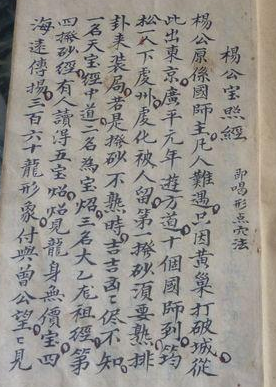 楊公宝照經
即唱形点穴法
楊公原係國師主凡人難遇只因黄巢打破城從
此出東京廣平元年遊方道十個國師到筠
松一人下處州虔化被人留第一撥砂須要熟排
卦來裝局若是撥砂不熟時吉吉凶凶侭不知
一名天宝經中道二名為宝炤三名大乙龙祖經第
四撥砂經有人讀得五宝炤炤見龍身無價宝四
海遠傳揚三百六十龍形象付與曾公望望見